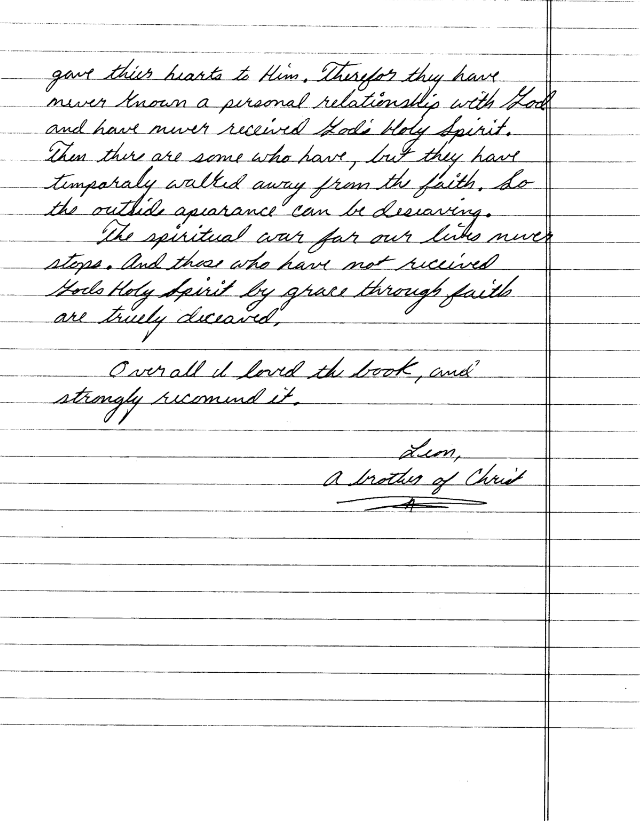 gave thier hearts to Him. Therefor they have
never known a personal relationship with God
and have never received God's Holy Spirit.
Then there are some who have, but they have
temporaly walked away from the faith. So
the outside apearance can be deseaving.
The spiritual war for our lives never
stops. And those who have not received
Gods Holy Spirit by grace through faith
are truely deceaved.
Overall I loved the book, and
strongly recomend it.
Leon,
A brother of Christ